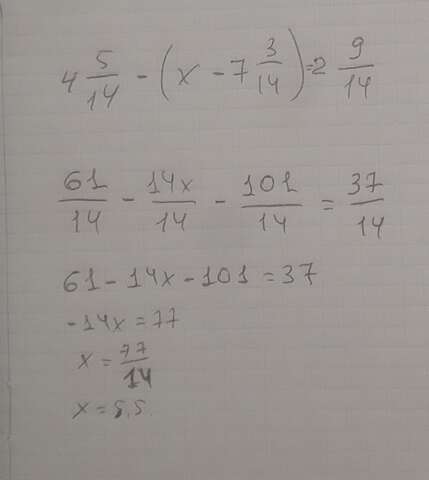 4 5/14 - (x - 7 3/14) = 2 9/14
61/14 - 14x/14 - 101/14 = 37/14
61 - 14x - 101 = 37
-14x = 77
x = 77/14
x = 5,5.